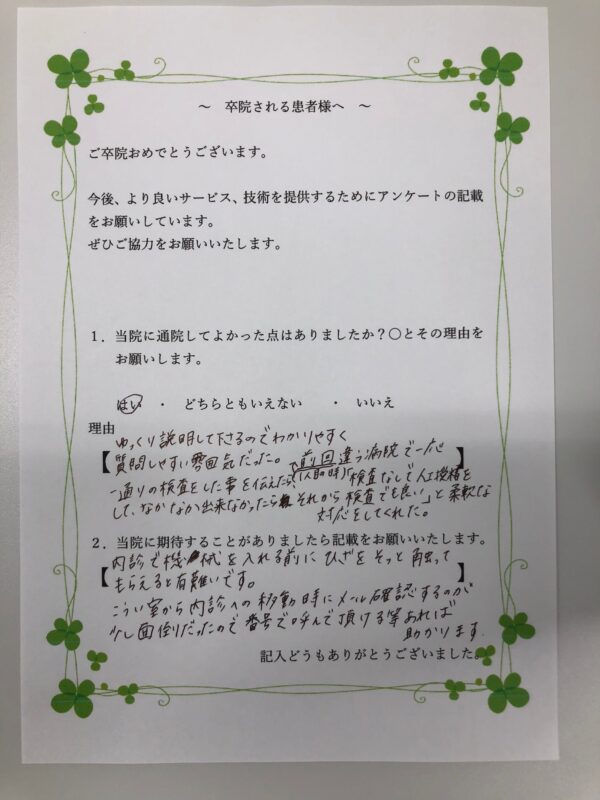 ～ 卒院される患者様へ ～
ご卒院おめでとうございます。
今後、より良いサービス、技術を提供するためにアンケートの記載
をお願いしています。
ぜひご協力をお願いいたします。
1．当院に通院してよかった点はありましたか？○とその理由を
お願いします。
はい ・ どちらともいえない ・ いいえ
理由
ゆっくり説明して下さるのでわかりやすく
【質問しやすい雰囲気だった。「前回違う病院で一応
(1人目の時)
一通りの検査をした事を伝えたら、検査なしで人工授精を
して、なかなか出来なかったら それから検査でも良い」と柔軟な
対応をしてくれた。 】
2．当院に期待することがありましたら記載をお願いいたします。
内診で機械を入れる前に ひざを そっと 触って
【もらえると有難いです。 】
こうい室から内診への移動時にメール確認するのが
少し面倒だったので 番号で呼んで頂ける等あれば
助かります
記入どうもありがとうございました。